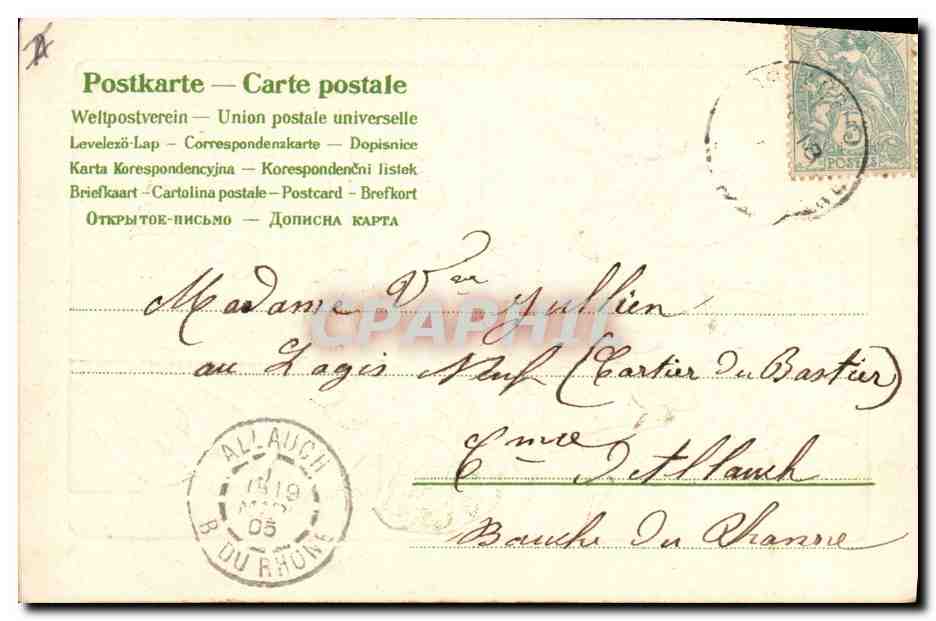 Postkarte — Carte postale
Weltpostverein – Union postale universelle
Levelező-Lap – Correspondenzkarte – Dopisnice
Karta Korespondencyjna – Korespondenční listek
Briefkaart – Cartolina postale – Postcard – Brefkort
Открытое-письмо — Дописна карта
5
POSTES
Madame Vve Jullien
CPAPHIL
au Logis Neuf (Cartier du Bastier)
Cme d'Allauch
Bouche du Rhonne
ALLAUCH
19
05
B. DU RHONE